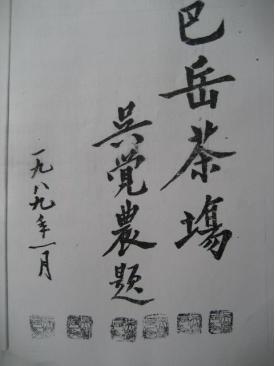 巴岳茶場
吳覚農題
一九八九年一月